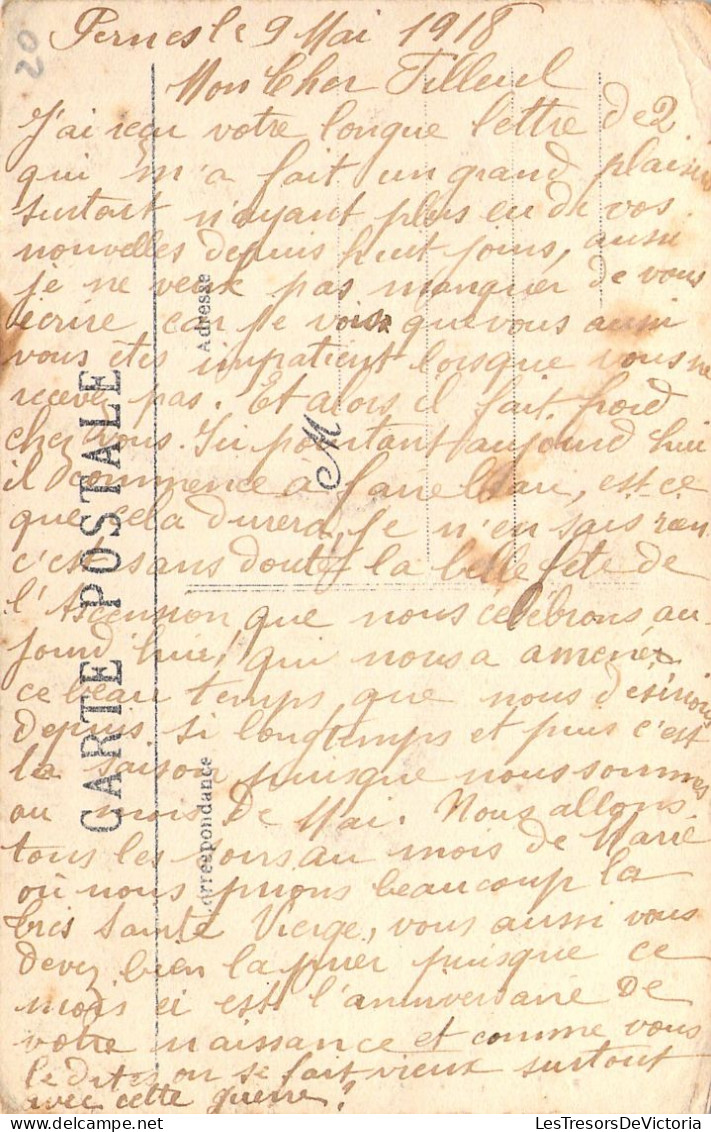 20
Pernes le 9 Mai 1918
Mon Cher Filleul
J'ai reçu votre longue lettre de 2
qui m'a fait un grand plaisir
surtout n'ayant plus eu de vos
nouvelles depuis huit jours, aussi
je ne veux pas manquer de vous
écrire car je vois que vous aussi
vous êtes impatient lorsque vous ne
recevez pas. Et alors il fait froid
chez vous. Ici pourtant aujourd'hui
il commence à faire beau, est-ce
que cela durera, je n'en sais rien
c'est sans doute la belle fête de
l'Ascension, que nous celébrons au-
jourd'hui, qui nous a amené
ce beau temps que nous désirions
depuis si longtemps et puis c'est
la saison puisque nous sommes
au mois de Mai. Nous allons
tous les soirs au mois de Marie
où nous prions beaucoup la
très Sainte Vierge, vous aussi vous
devez bien la prier puisque ce
mois ci est l'anniversaire de
votre naissance et comme vous
le dites on se fait vieux surtout
avec cette guerre!
CARTE POSTALE
Correspondance
Adresse
M
LesTresorsDeVictoria - Delcampe.net